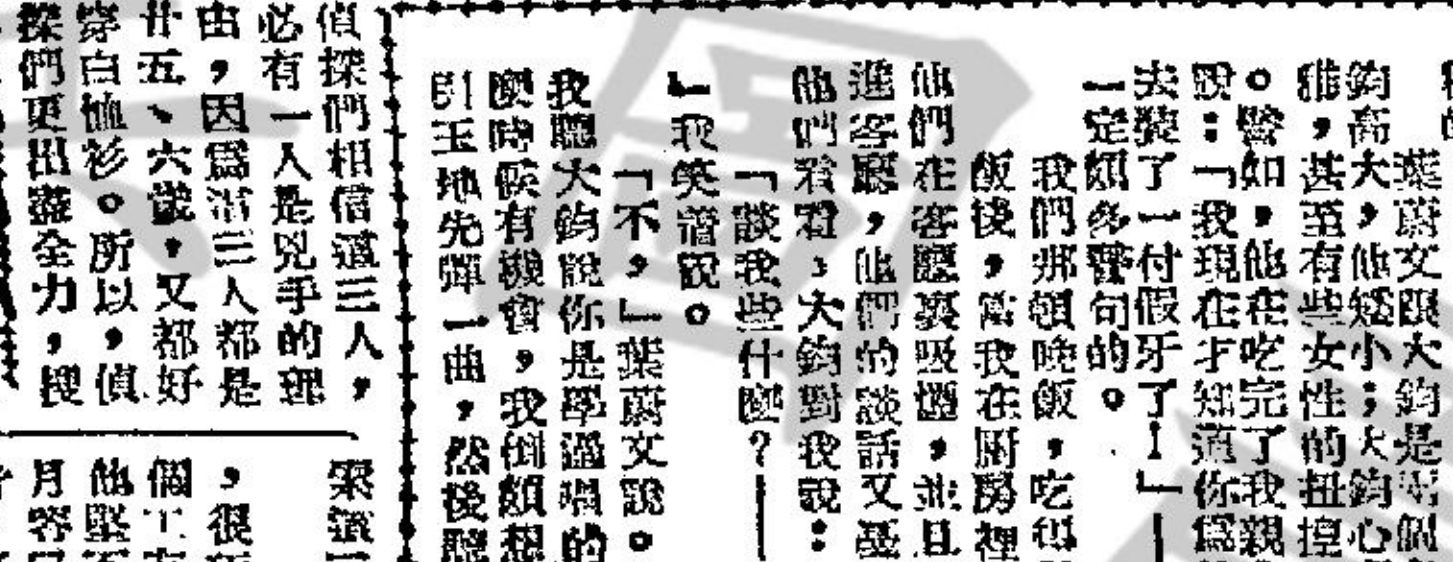 葉蔚文跟大鈞是兩個
鈞高大，他矮小；大鈞心
雅，甚至有些女性的扭捏
。譬如，他在吃完了我親
說：「我現在才知道你爲
去裝了一付假牙了！」—
一定頗多警句的。
我們那頓晚飯，吃得
飯後，當我在厨房裡
他們在客廳裏吸煙，並且
進客廳，他們的談話又
他們看看，大鈞對我說：
「談我些什麼？—
」我笑着說。
「不，」葉蔚文說。
我聽大鈞說你是學過唱的
麼時候有機會，我倒頗想
引玉地先彈一曲，然後聽
偵探們相信這三人，
必有一人是兇手的理
由，因爲這三人都是
廿五、六歲，又都好
穿白恤衫。所以，偵
探們更出盡全力，搜
，很
個工
他堅
月容